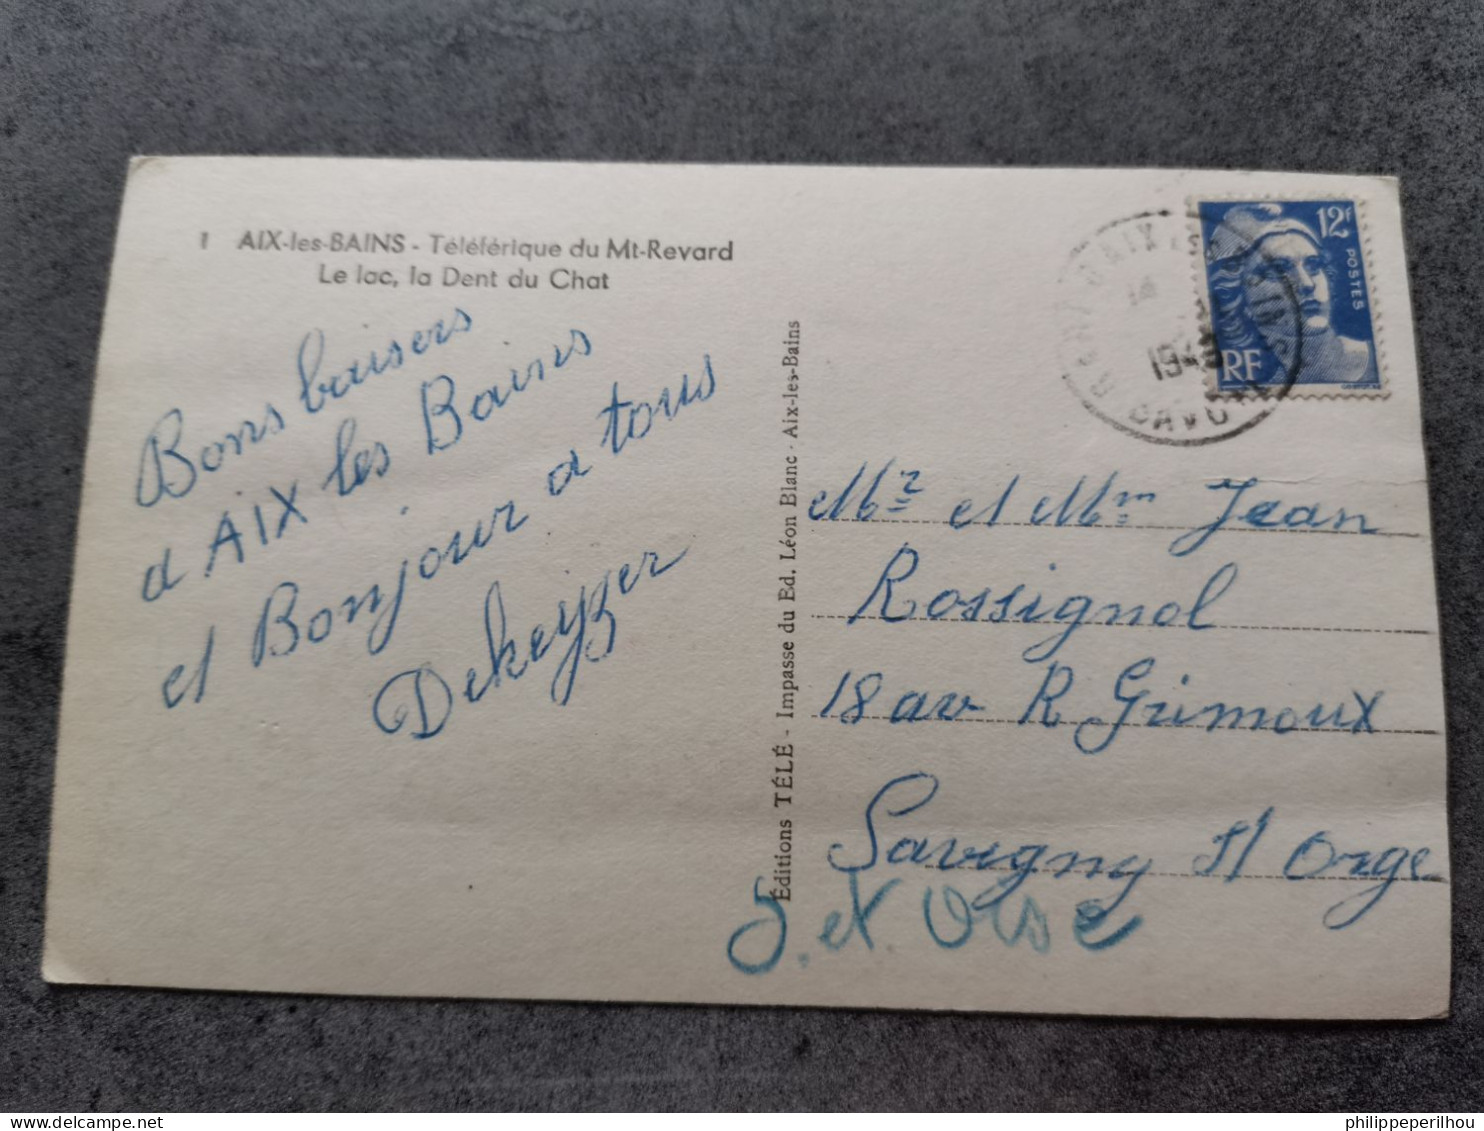 1 AIX-les-BAINS - Téléférique du Mt-Revard
Le lac, la Dent du Chat
Bons baisers
d AIX les Bains
et Bonjour a tous
Dekeyzer
Éditions TÉLÉ - Impasse du Ed. Léon Blanc - Aix-les-Bains
12F
POSTES
RF
AIX
1949
Mr et Mm Jean
Rossignol
18 av R Grimoux
Savigny s/ Orge
S. et Oise
philippeperilhou